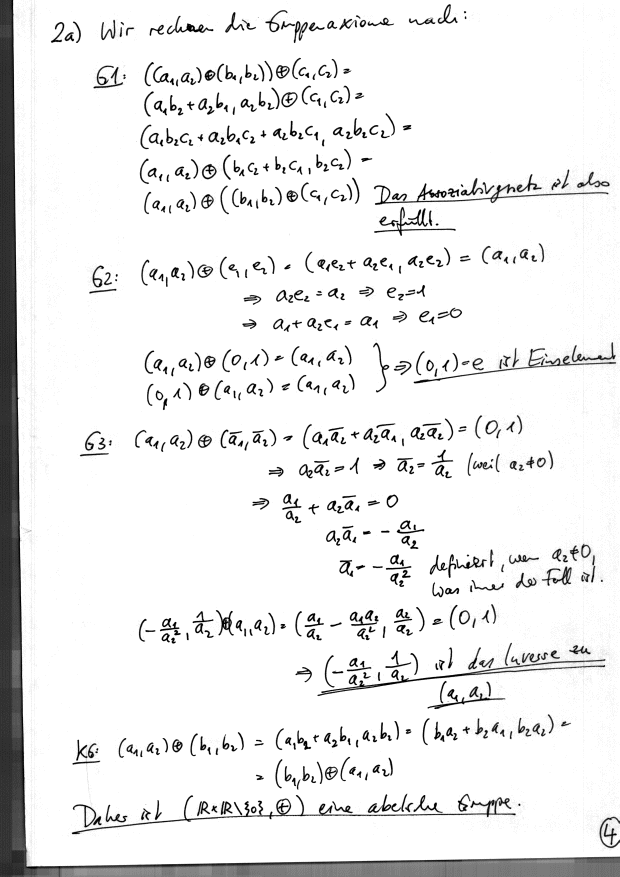 2a) Wir rechnen die Gruppenaxiome nach:
G1: ((a₁,a₂)⊕(b₁,b₂))⊕(c₁,c₂) =
(a₁b₂+a₂b₁, a₂b₂)⊕(c₁,c₂) =
(a₁b₂c₂+a₂b₁c₂+a₂b₂c₁, a₂b₂c₂) =
(a₁,a₂)⊕(b₁c₂+b₂c₁, b₂c₂) =
(a₁,a₂)⊕((b₁,b₂)⊕(c₁,c₂)) Das Assoziativgesetz ist also
erfüllt.
G2: (a₁,a₂)⊕(e₁,e₂) = (a₁e₂+a₂e₁, a₂e₂) = (a₁,a₂)
⇒ a₂e₂=a₂ ⇒ e₂=1
⇒ a₁+a₂e₁=a₁ ⇒ e₁=0
(a₁,a₂)⊕(0,1)=(a₁,a₂)
(0,1)⊕(a₁,a₂)=(a₁,a₂) } ⇒ (0,1)=e ist Einselement
G3: (a₁,a₂)⊕(a̅₁,a̅₂) = (a₁a̅₂+a₂a̅₁, a₂a̅₂) = (0,1)
⇒ a₂a̅₂=1 ⇒ a̅₂=1/a₂ (weil a₂≠0)
⇒ a₁/a₂ + a₂a̅₁ = 0
a₂a̅₁ = -a₁/a₂
a̅₁ = -a₁/a₂² definiert, wenn a₂≠0,
was immer der Fall ist.
(-a₁/a₂², 1/a₂)⊕(a₁,a₂) = (a₁/a₂ - a₁a₂/a₂², a₂/a₂) = (0,1)
⇒ (-a₁/a₂², 1/a₂) ist das Inverse zu
(a₁,a₂)
KG: (a₁,a₂)⊕(b₁,b₂) = (a₁b₂+a₂b₁, a₂b₂) = (b₁a₂+b₂a₁, b₂a₂) =
= (b₁,b₂)⊕(a₁,a₂)
Daher ist (ℝ×ℝ\{0}, ⊕) eine abelsche Gruppe.
4